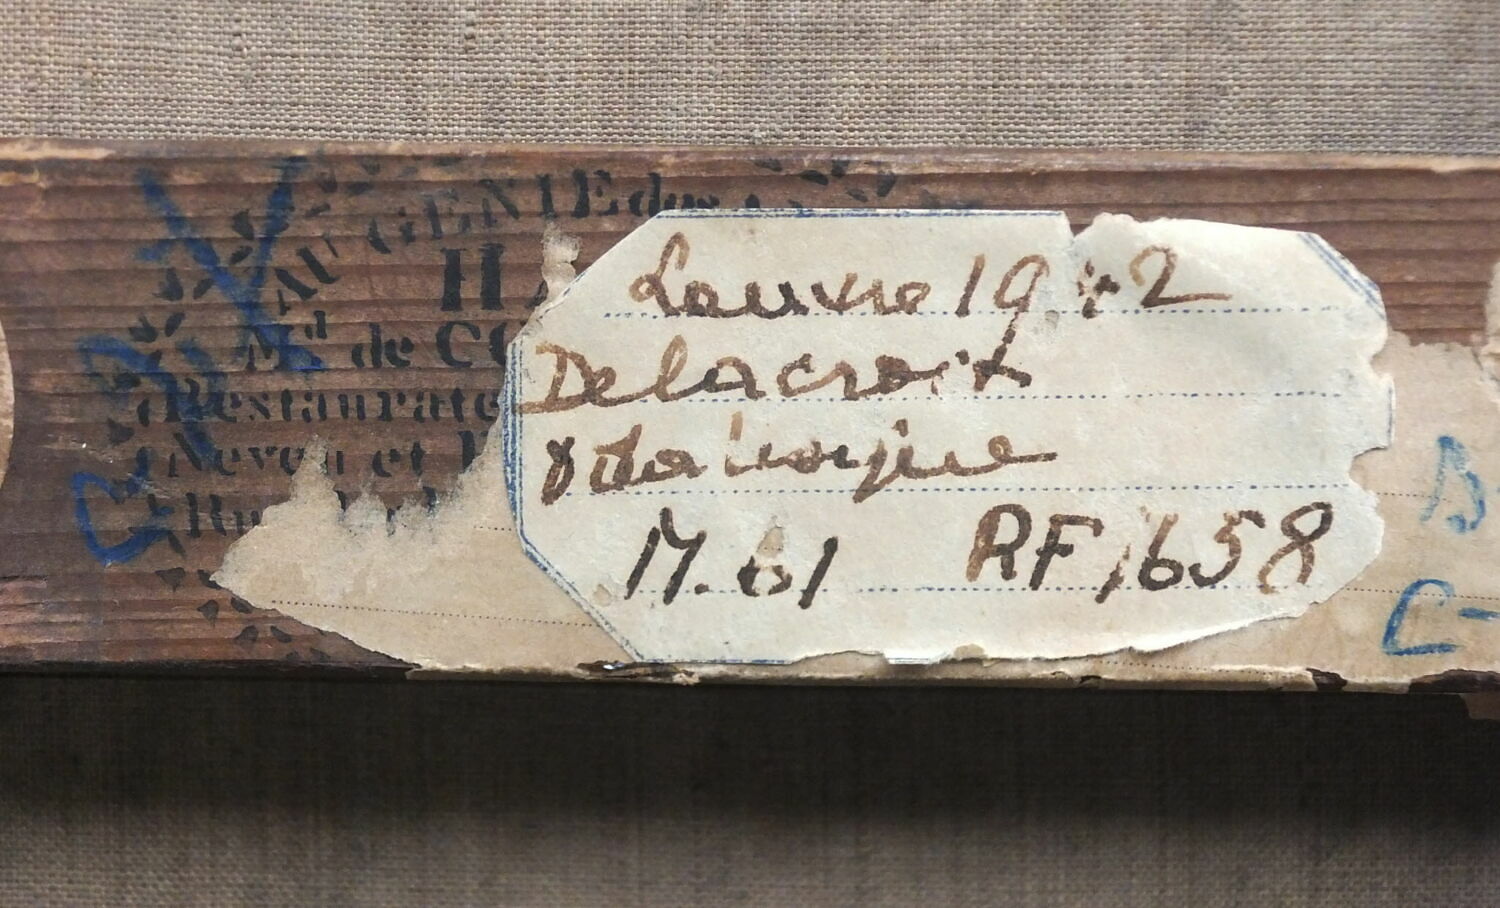 AU GENIE des
H
Md de CO
Restaurate
Neveu et
Ru
Louvre 1942
Delacroix
Odalisque
M. 61 RF 1658
C-